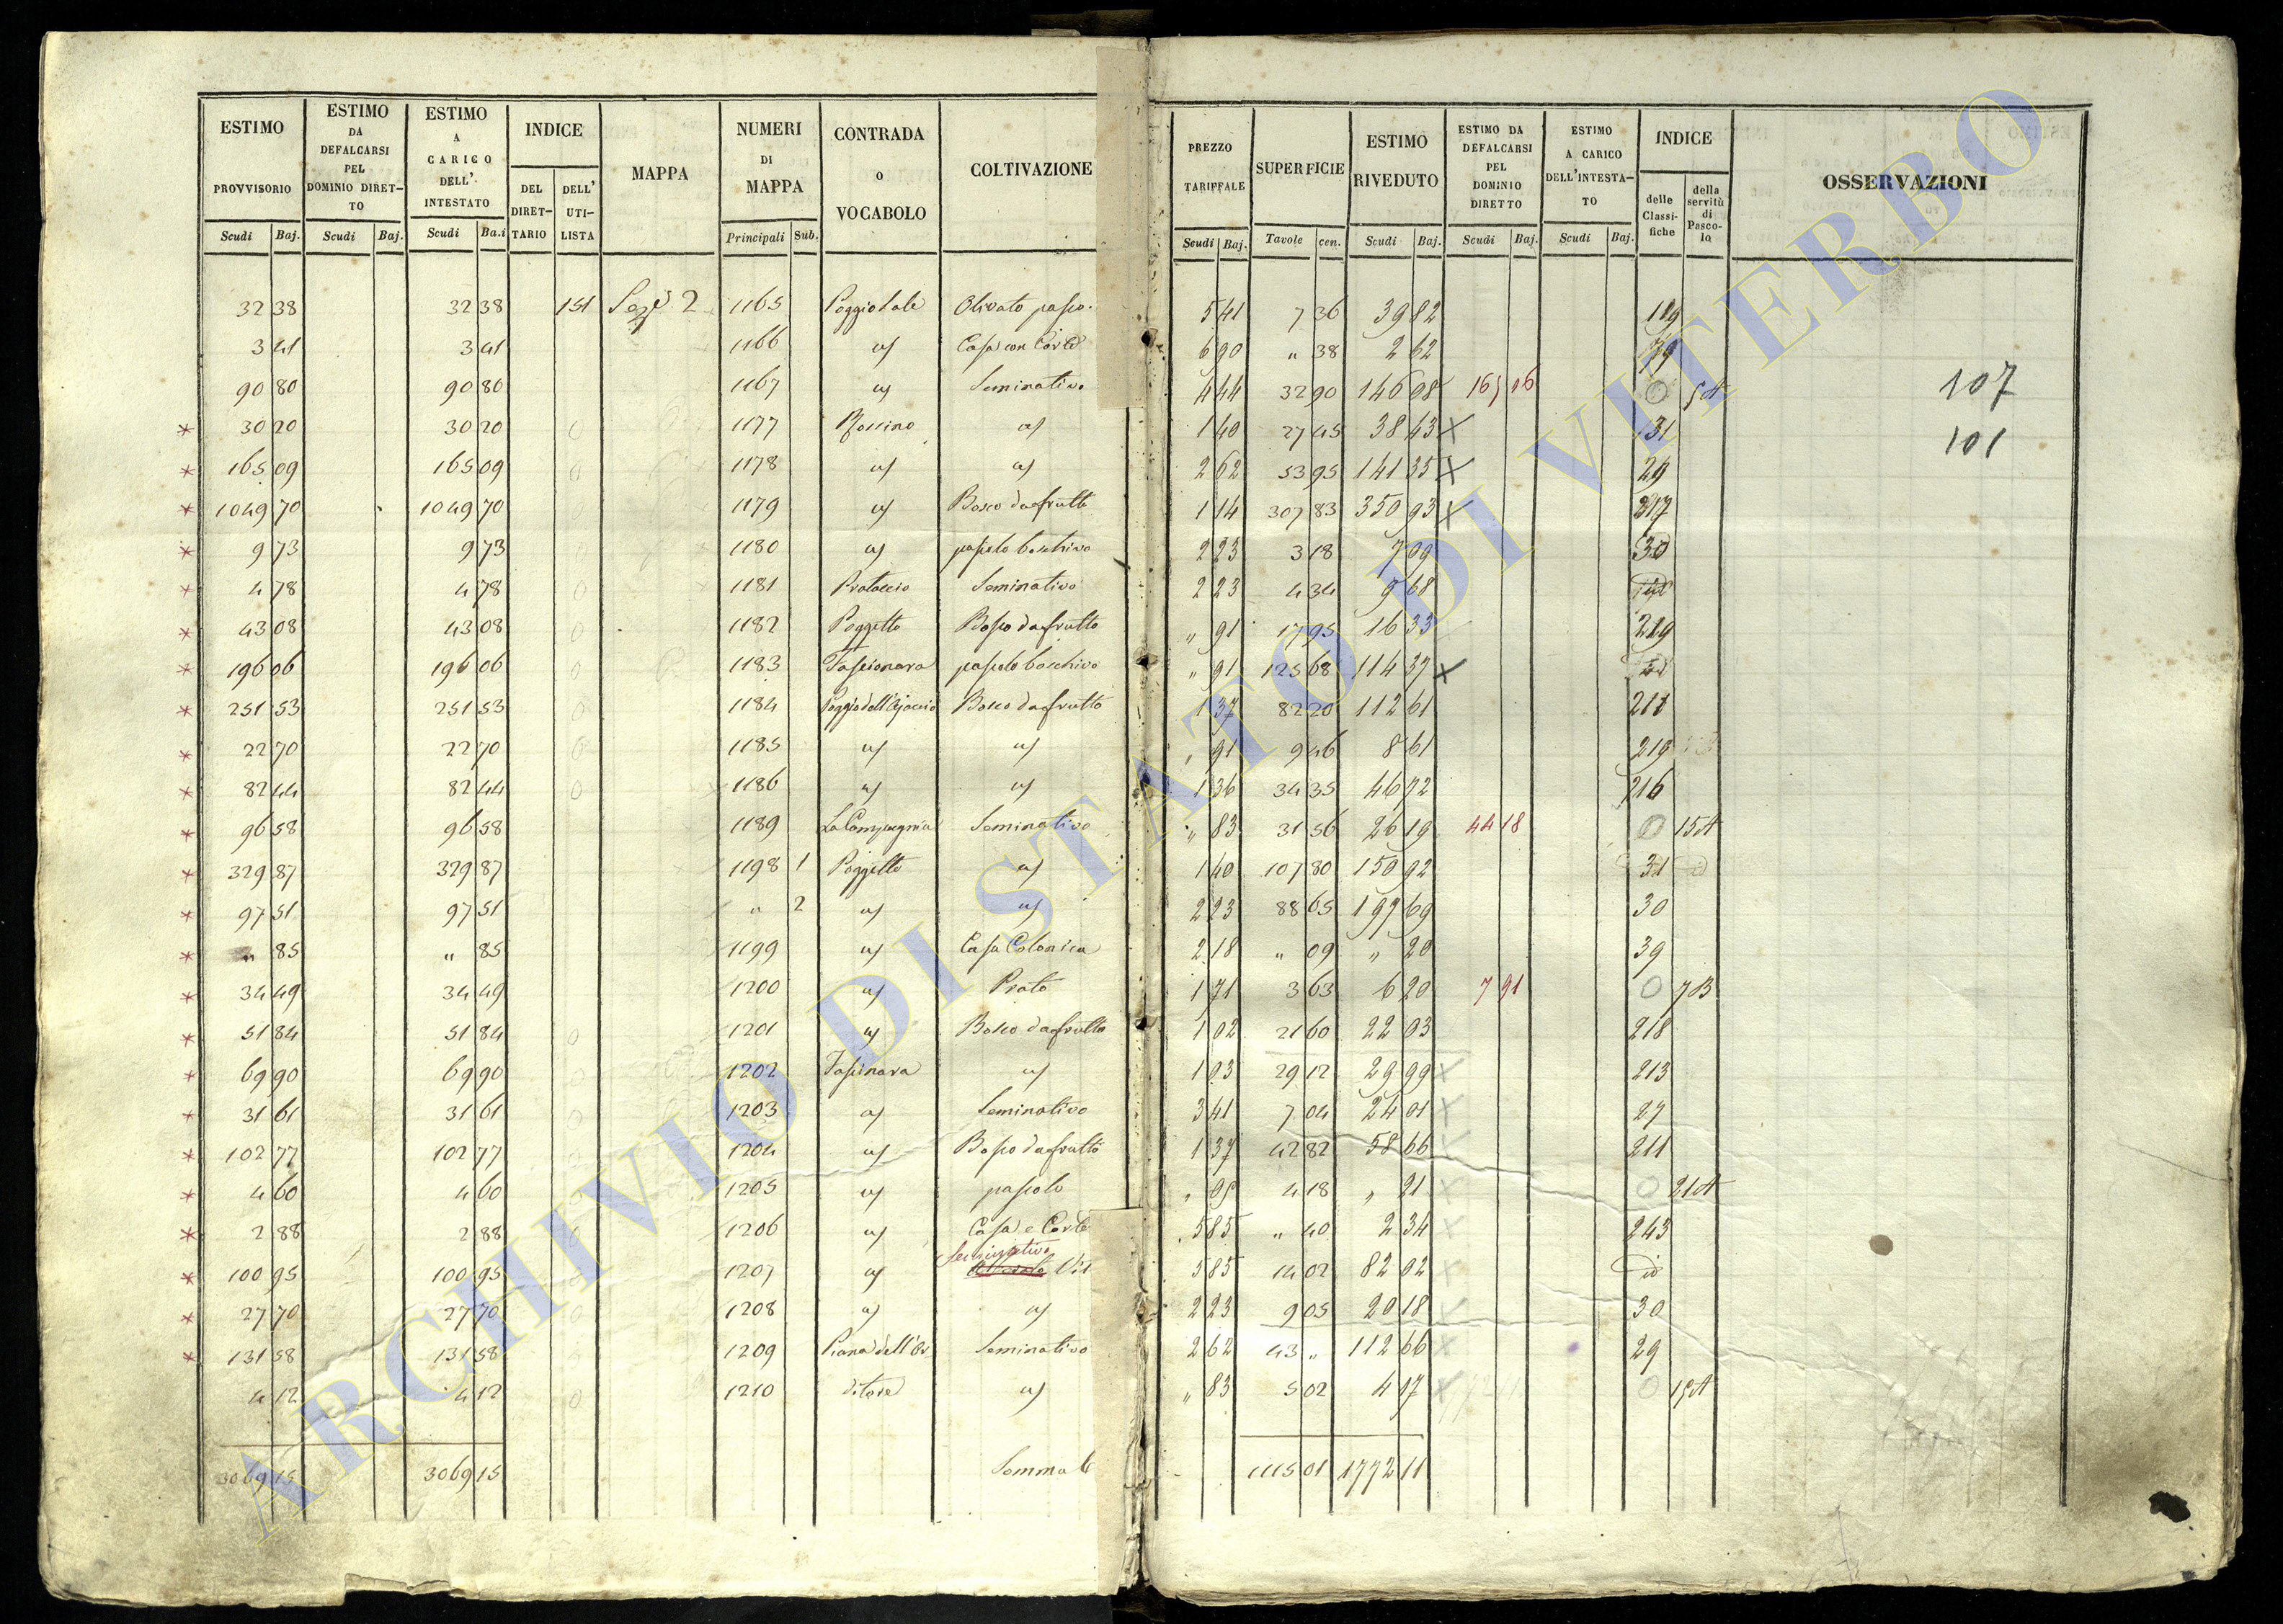 ESTIMO PROVVISORIO | ESTIMO DA DEFALCARSI PEL DOMINIO DIRETTO | ESTIMO A CARICO DELL' INTESTATO | INDICE | MAPPA | NUMERI DI MAPPA | CONTRADA O VOCABOLO | COLTIVAZIONE | PREZZO TARIFFALE | SUPERFICIE | ESTIMO RIVEDUTO | ESTIMO DA DEFALCARSI PEL DOMINIO DIRETTO | ESTIMO A CARICO DELL'INTESTATO | INDICE | OSSERVAZIONI
DEL DIRETTARIO | DELL' UTILISTA | delle Classifiche | della servitù di Pascolo
Scudi | Baj. | Scudi | Baj. | Scudi | Ba.i | Principali | Sub. | Scudi | Baj. | Tavole | cen. | Scudi | Baj. | Scudi | Baj. | Scudi | Baj.
32 38 | 32 38 | 151 | Sez.e 2 | 1165 | Poggio Sale | Olivato pasco. | 5 41 | 7 36 | 39 82 | 119
3 41 | 3 41 | 1166 | a/ | Casa con Corte | 6 90 | " 38 | 2 62 | 39
90 80 | 90 80 | 1167 | a/ | Seminativo | 4 44 | 32 90 | 146 08 | 0 | 5A | 107
* 30 20 | 30 20 | 0 | 1177 | a/ | 1 40 | 27 45 | 38 43 X | 31 | 101
* 165 09 | 165 09 | 0 | 1178 | a/ | a/ | 2 62 | 53 95 | 141 35 X | 29
* 1049 70 | 1049 70 | 1179 | a/ | Bosco da frutto | 1 14 | 307 83 | 350 93 X | 217
* 9 73 | 9 73 | 1180 | a/ | pascolo boschivo | 2 23 | 3 18 | 7 09 | 30
* 4 78 | 4 78 | 0 | 1181 | Prataccio | Seminativo | 2 23 | 4 34 | 9 68 | id
* 43 08 | 43 08 | 0 | 1182 | Poggetto | Bosco da frutto | " 91 | 17 95 | 16 33 | 219
* 196 06 | 196 06 | 0 | 1183 | Fascionara | pascolo boschivo | " 91 | 125 68 | 114 37 X | id
* 251 53 | 251 53 | 0 | 1184 | Bosco da frutto | 1 37 | 82 20 | 112 61 | 211
* 22 70 | 22 70 | 0 | 1185 | a/ | a/ | " 91 | 9 46 | 8 61 | 219
* 82 44 | 82 44 | 0 | 1186 | a/ | a/ | 1 36 | 34 35 | 46 72 | 216
* 96 58 | 96 58 | 1189 | La Compagnia | Seminativo | " 83 | 31 56 | 26 19 | 44 18 | 0 | 15A
* 329 87 | 329 87 | 1198 | 1 | Poggetto | a/ | 1 40 | 107 80 | 150 92 | 31
* 97 51 | 97 51 | " | 2 | a/ | a/ | 2 23 | 88 65 | 197 69 | 30
* " 85 | " 85 | 1199 | a/ | Casa Colonica | 2 18 | " 09 | " 20 | 39
* 34 49 | 34 49 | 1200 | a/ | Prato | 1 71 | 3 63 | 6 20 | 7 91 | 0 | 7B
* 51 84 | 51 84 | 0 | 1201 | a/ | Bosco da frutto | 1 02 | 21 60 | 22 03 | 218
* 69 90 | 69 90 | 0 | 1202 | Fascinara | a/ | 1 03 | 29 12 | 29 99 X | 213
* 31 61 | 31 61 | 0 | 1203 | a/ | Seminativo | 3 41 | 7 04 | 24 01 X | 27
* 102 77 | 102 77 | 0 | 1204 | a/ | Bosco da frutto | 1 37 | 42 82 | 58 66 X | 211
* 4 60 | 4 60 | 1205 | a/ | pascolo | " 05 | 4 18 | " 21 X | 0 | 21A
* 2 88 | 2 88 | 1206 | a/ | Casa e Corte | 5 85 | " 40 | 2 34 X | 243
Seminativo
* 100 95 | 100 95 | 1207 | a/ | 5 85 | 14 02 | 82 02 X | id
* 27 70 | 27 70 | 0 | 1208 | a/ | a/ | 2 23 | 9 05 | 20 18 | 30
* 131 58 | 131 58 | 1209 | Piana dell'Or | Seminativo | 2 62 | 43 " | 112 66 X | 29
4 12 | 4 12 | 0 | 1210 | a/ | " 83 | 5 02 | 4 17 X | 0 | 15A
3069 15 | 3069 15 | Somma | 1115 01 | 1772 11
ARCHIVIO DI STATO DI VITERBO